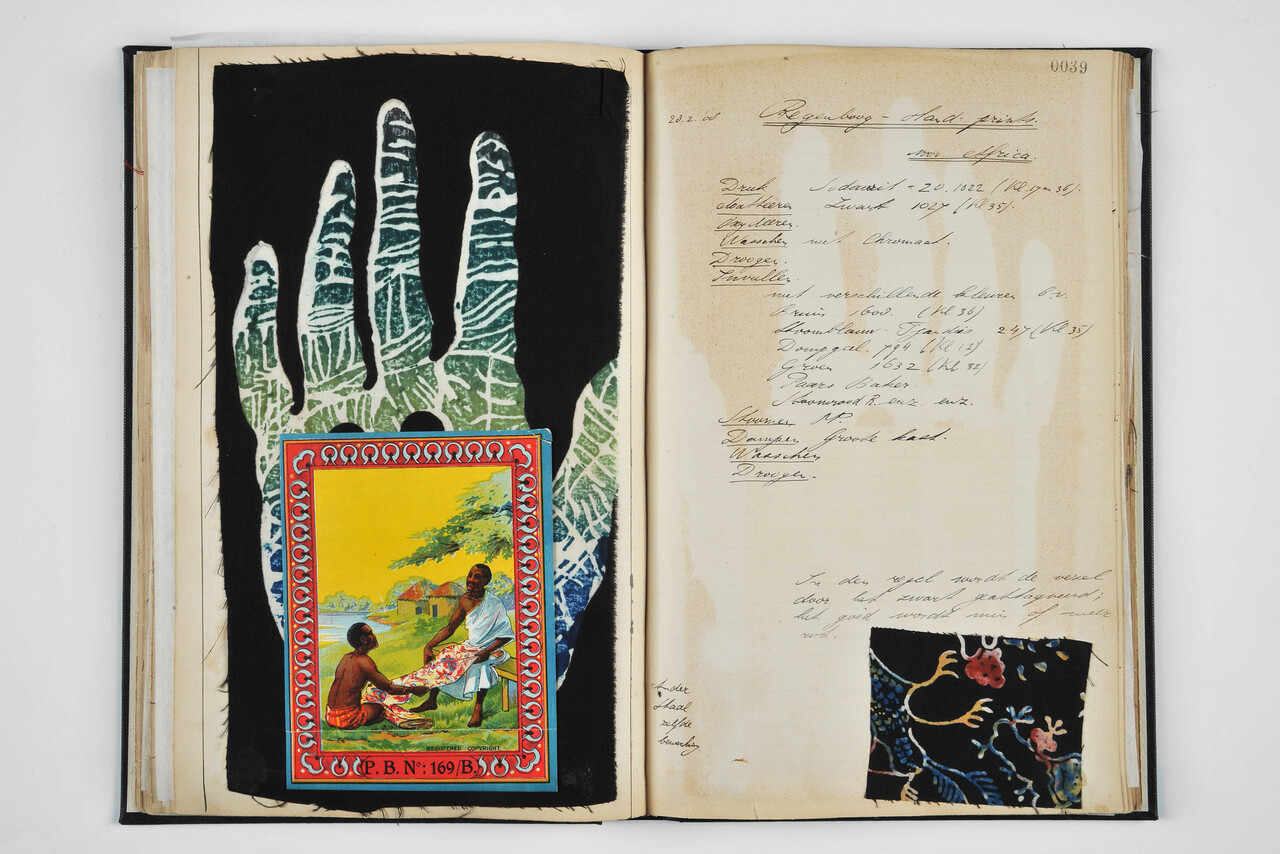 REGISTERED COPYRIGHT
P. B. Nº: 169/B.
0039
Regenboog - Hand prints.
voor Africa.
Druk - 20. 1022 (Kl. 17 en 36).
Zwart 1027 (Kl 35).
Oxydeeren.
Wasschen met Chromaat.
Droogen.
Invullen.
met verschillende kleuren b.v.
Bruin 1608. (Kl 36)
Stoomblauw - 247 (Kl 35)
Dampgeel. 794 (Kl 12)
Groen 1632 (Kl 32)
Paars
Stoomrood R. enz. enz.
Stoomen MP.
Dampen Groote kast.
Wasschen
Droogen.
In den regel wordt de vezel
door het zwart geattaqueerd;
het goed wordt min of meer
rot.
Ander
Staal
zelfde
bewerking